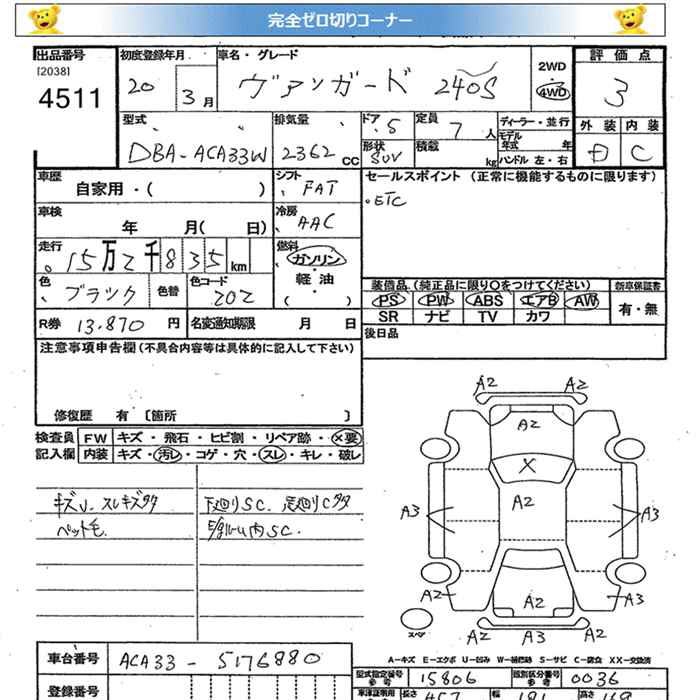 完全ゼロ切りコーナー
出品番号 初度登録年月 車名・グレード 2WD 評価点
[2038] 20 3月 ヴァンガード 240S 4WD 3
4511
型式 排気量 ドア 5 定員 7人 ディーラー・並行 外装 内装
DBA-ACA33W 2362 cc 形状 SUV 積載 kg モデル年式 年 ハンドル 左・右 D C
車歴 自家用・( ) シフト FAT セールスポイント (正常に機能するものに限ります)
車検 年 月( 日) 冷房 AAC ・ETC
走行 15万2千835km 燃料 ガソリン 軽油 ( )
色 ブラック 色替 色コード 202 装備品 (純正品に限り○をつけてください) 新車保証書
PS PW ABS エアB AW 有・無
R券 13,870 円 名変通知期限 月 日 SR ナビ TV カワ
注意事項申告欄(不具合内容等は具体的に記入して下さい) 後日品
修復歴 有 〔箇所 〕
検査員 FW キズ・飛石・ヒビ割・リペア跡・×要
記入欄 内装 キズ・汚レ・コゲ・穴・スレ・キレ・破レ
キズU.スレキズ多 下廻りSC.足廻りC多
ペット毛. E/gルーム内SC.
A2 A2
A2
X
A3 A2 A3
A2 A2 A3
スペア A2 A2
A-キズ E-エクボ U-凹み W-補修跡 S-サビ C-腐食 XX-交換済
車台番号 ACA33-5176880
型式指定番号 15806 類別区分番号 0036
登録番号 長さ 457 幅 181 高さ 169